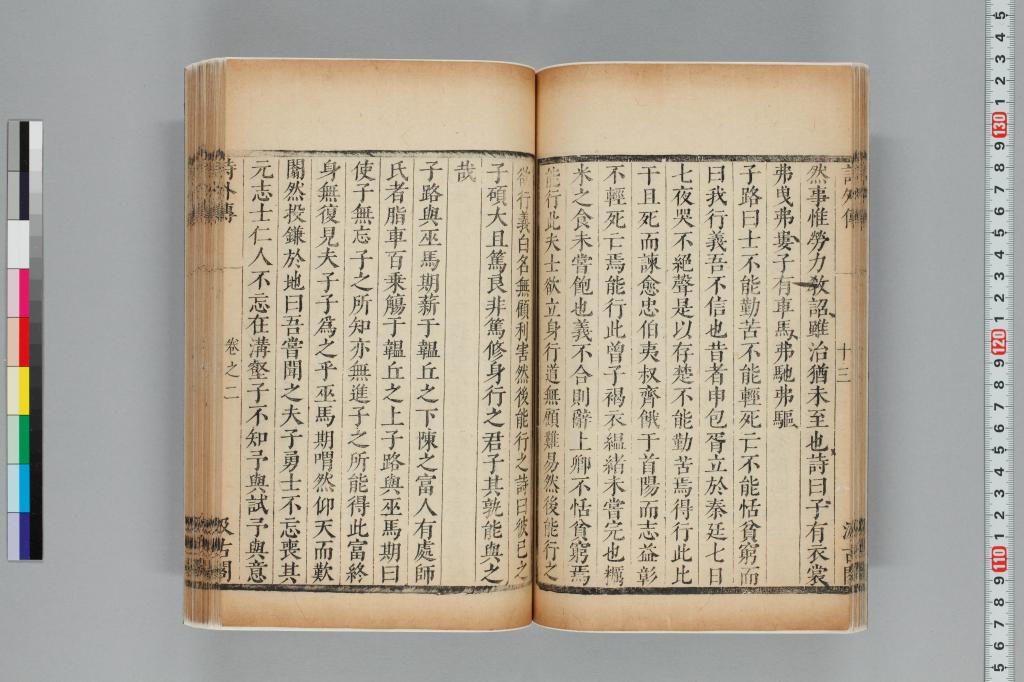 然事惟勞力教詔雖治猶未至也詩曰子有衣裳
弗曳弗婁子有車馬弗馳弗驅
子路曰士不能勤苦不能輕死亡不能恬貧窮而
曰我行義吾不信也昔者申包胥立於秦廷七日
七夜哭不絕聲是以存楚不能勤苦焉得行此比
干且死而諫愈忠伯夷叔齊餓于首陽而志益彰
不輕死亡焉能行此曾子褐衣縕緒未嘗完也糲
米之食未嘗飽也義不合則辭上卿不恬貧窮焉
能行此夫士欲立身行道無顧難易然後能行之
欲行義白名無顧利害然後能行之詩曰彼己之
子碩大且篤良非篤修身行之君子其孰能與之
哉
子路與巫馬期薪于韞丘之下陳之富人有處師
氏者脂車百乘觴于韞丘之上子路與巫馬期曰
使子無忘子之所知亦無進子之所能得此富終
身無復見夫子子為之乎巫馬期喟然仰天而歎
闟然投鎌於地曰吾嘗聞之夫子勇士不忘喪其
元志士仁人不忘在溝壑子不知予與試予與意
詩外傳
卷之二
汲古閣
詩外傳
十三
汲古閣
5
4
3
2
1
130
9
8
7
6
5
4
3
2
1
120
9
8
7
6
5
4
3
2
1
110
9
8
7
6
5